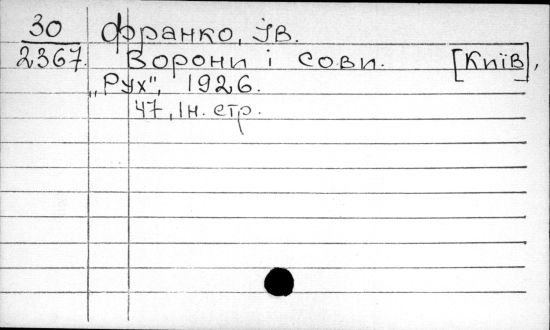 30 Франко, Ів.
2367. Ворони і сови. [Київ],
"Рух", 1926.
47, 1н. стр.